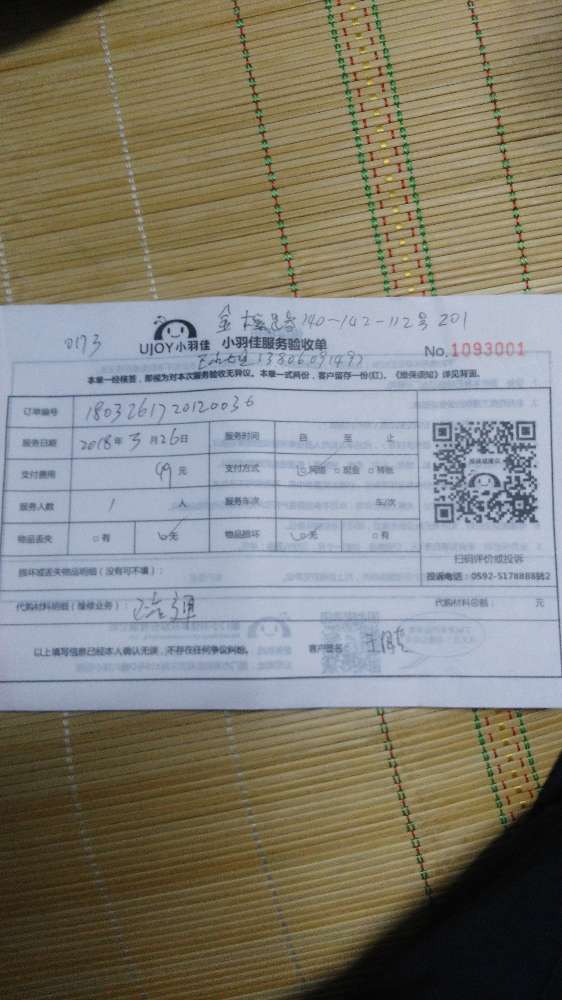 140-142-112号 201
0173
UJOY小羽佳 小羽佳服务验收单
No.1093001
本单一经接签，即视为对本次服务验收无异议。本单一式两份，客户留存一份(红)。《维保须知》详见背面。
订单编号 1803261720120036
服务日期 2018年 3月 26日 服务时间 自 至 止
支付费用 99 元 支付方式 网络 现金 转账
服务人数 1 人 服务车次 车/次
物品丢失 有 无 物品损坏 无 有
扫码评价或投诉
损坏或丢失物品明细（没有可不填）：
投诉电话：0592-5178888转2
代购材料明细（维修业务）： 代购材料总额： 元
以上填写信息已经本人确认无误，不存在任何争议纠纷。 客户签名：